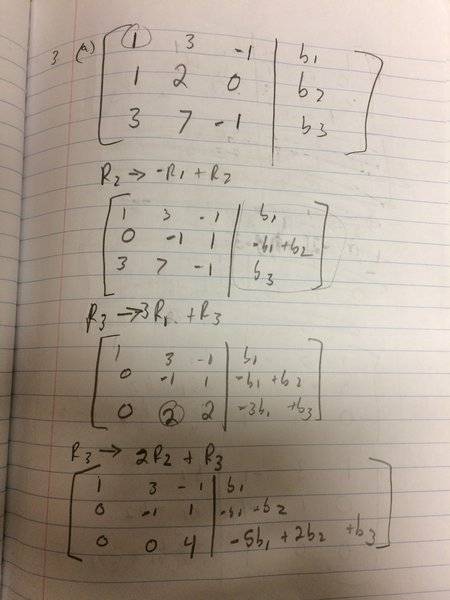 3 (a) 1 3 -1 | b1
1 2 0 | b2
3 7 -1 | b3
R2 → -R1 + R2
1 3 -1 | b1
0 -1 1 | -b1 + b2
3 7 -1 | b3
R3 → 3R1 + R3
1 3 -1 | b1
0 -1 1 | -b1 + b2
0 2 2 | -3b1 + b3
R3 → 2R2 + R3
1 3 -1 | b1
0 -1 1 | -b1 + b2
0 0 4 | -5b1 + 2b2 + b3